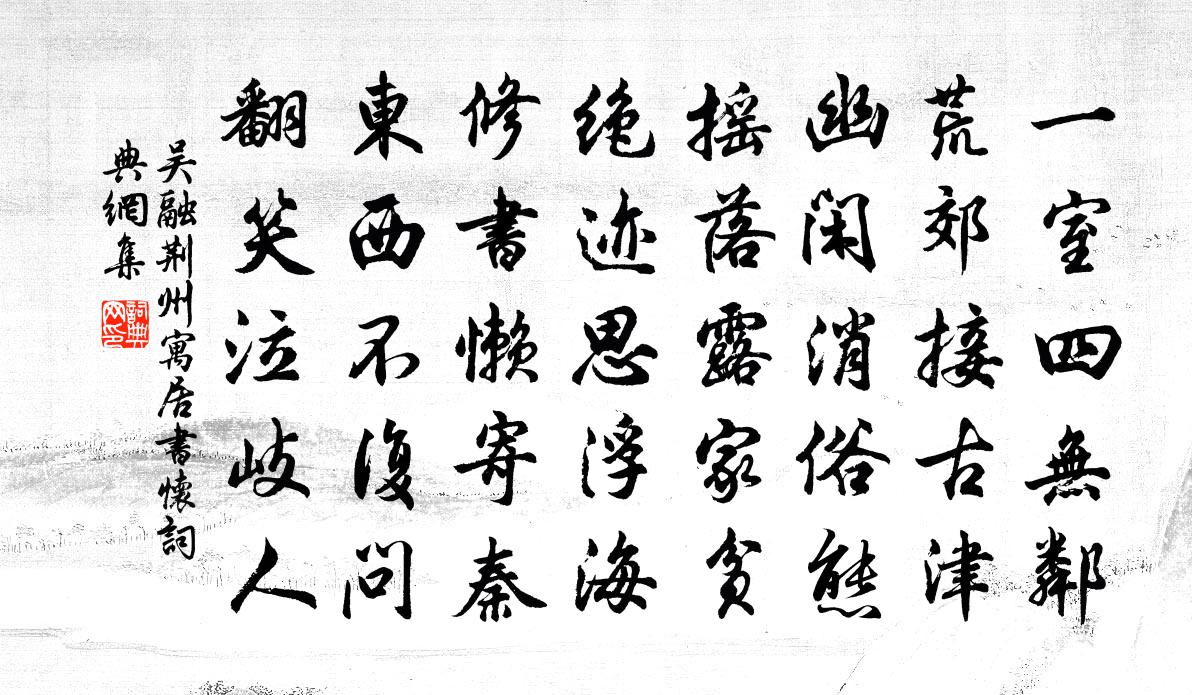 一室四無鄰
荒郊接古津
幽閑消俗態
摇落露家貧
绝迹思浮海
修書懶寄秦
東西不復問
翻笑泣岐人
吴融荆州寓居書懷詞
典網集
詞典
网印